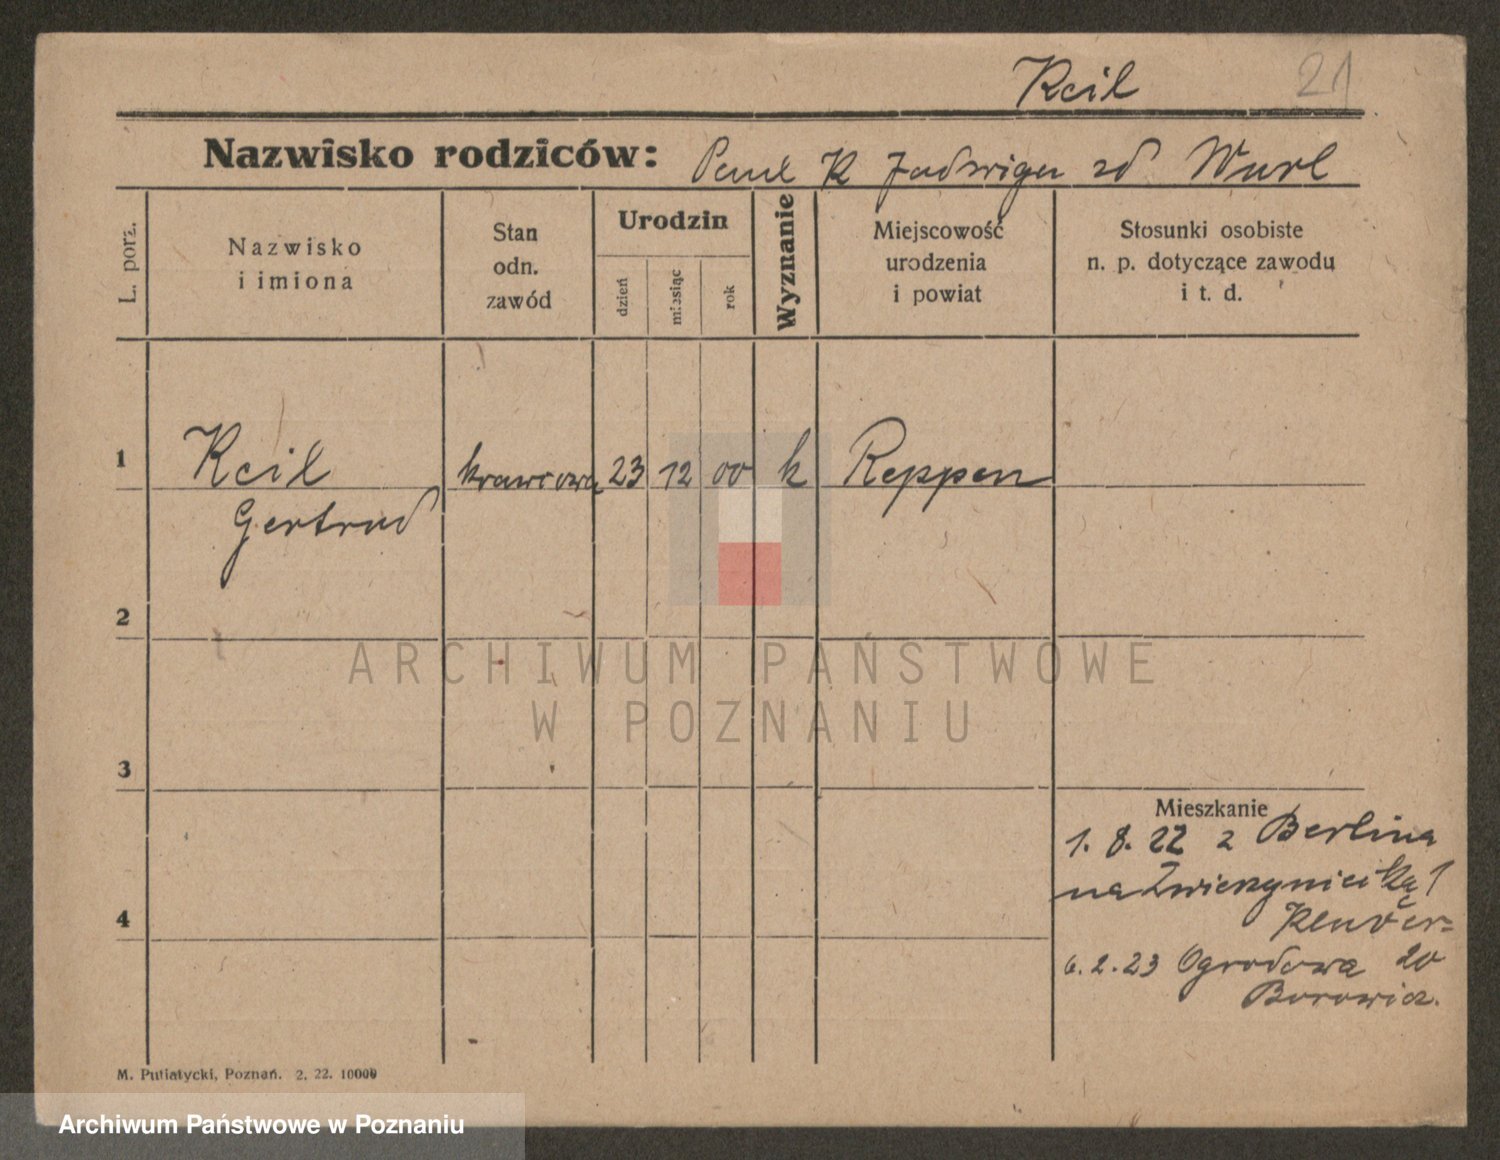 Keil 21
Nazwisko rodziców: Paul K Jadwiga zd Wurl
L. porz.
Nazwisko
i imiona
Stan
odn.
zawód
Urodzin
dzień
miesiąc
rok
Wyznanie
Miejscowość
urodzenia
i powiat
Stosunki osobiste
n. p. dotyczące zawodu
i t. d.
1 Keil krawcowa 23 12 00 k Reppen
Gertrud
2
ARCHIWUM PAŃSTWOWE
W POZNANIU
3
Mieszkanie
1. 8. 22 z Berlina
na Zwierzyniecką 1
4
6. 2. 23 Ogrodowa 20
Borowicz.
M. Putiatycki, Poznań. 2. 22. 10000
Archiwum Państwowe w Poznaniu